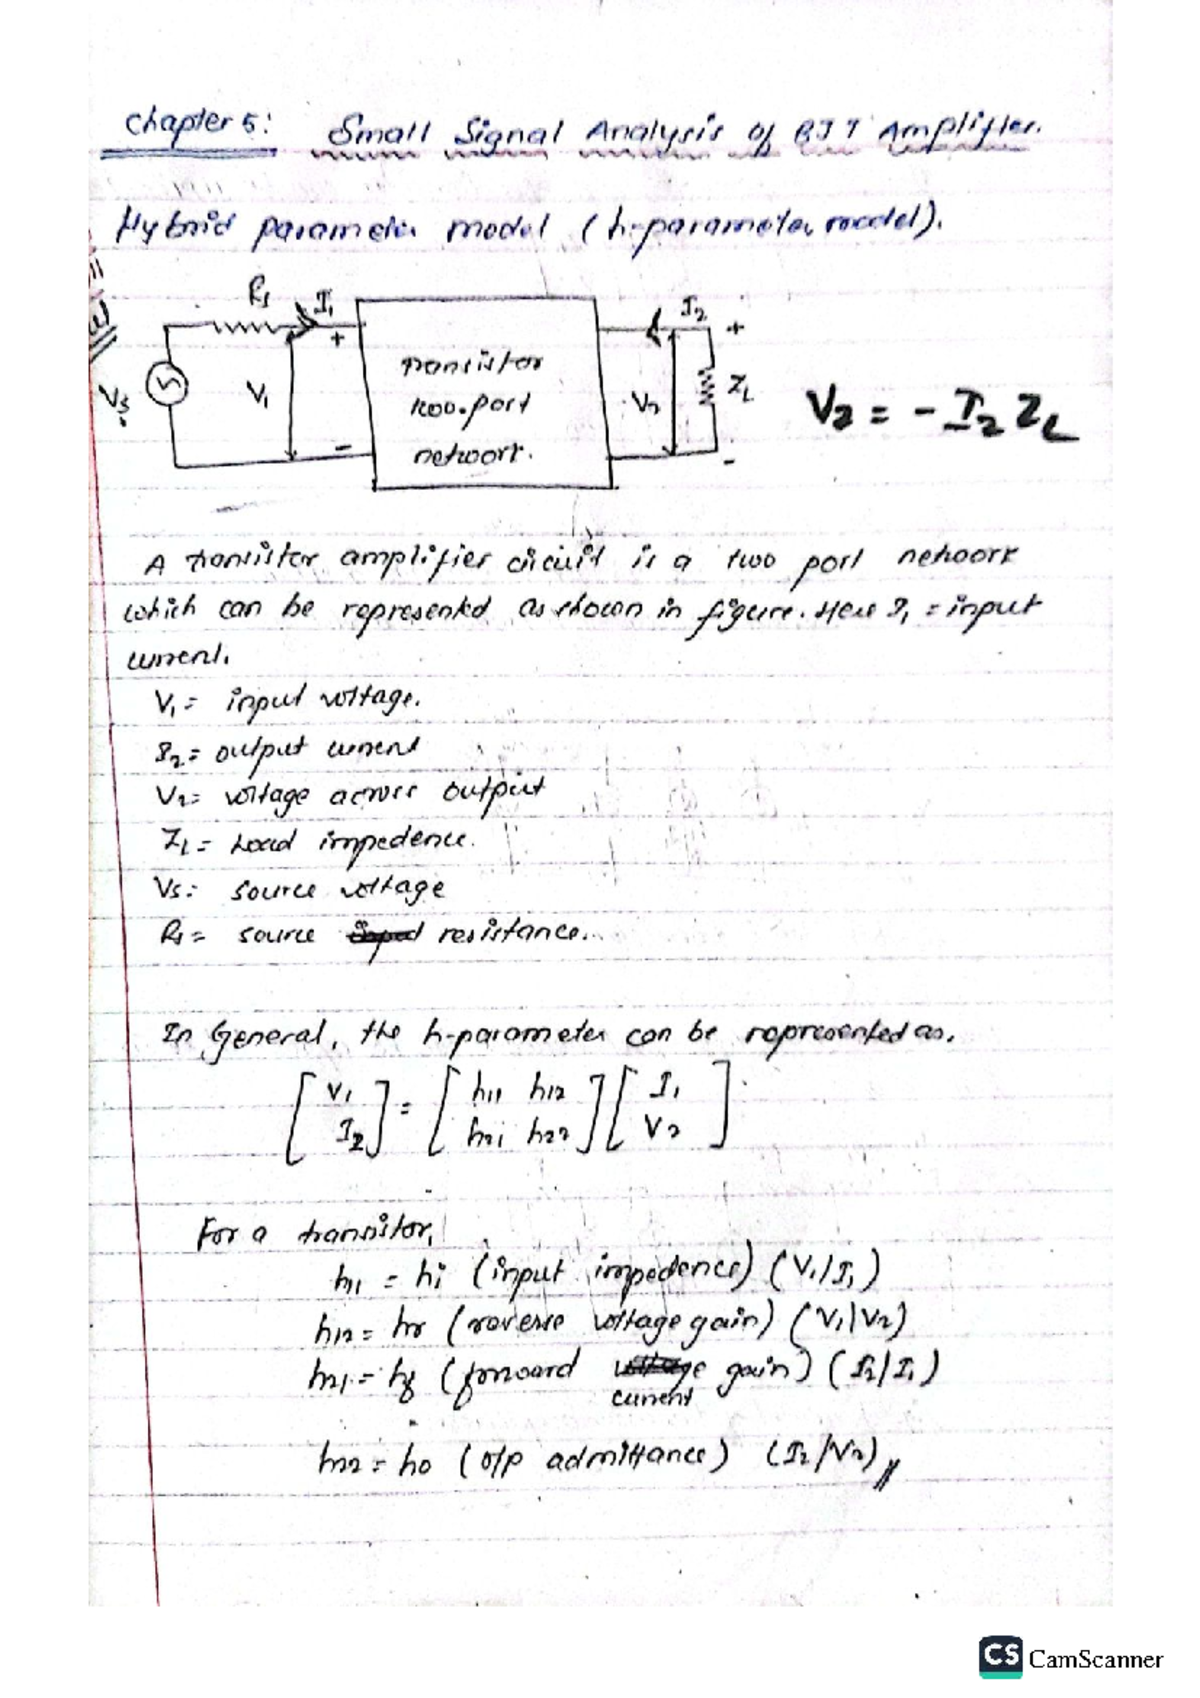 Chapter 5: Small Signal Analysis of BJT Amplifier.
Hybrid parameter model (h-parameter model).
Rs I1 I2
+ +
Vs V1 transistor two-port network. V2 ZL V2 = - I2 ZL
- -
A transistor amplifier circuit is a two port network
which can be represented as shown in figure. Here I1 = input
current.
V1 = input voltage.
I2 = output current
V2 = voltage across output
ZL = Load impedence.
Vs = source voltage
Rs = source resistance.
In General, the h-parameter can be represented as,
[V1 I2] = [h11 h12 h21 h22] [I1 V2]
For a transistor,
h11 = hi (input impedence) (V1/I1)
h12 = hr (reverse voltage gain) (V1/V2)
h21 = hf (forward voltage gain) (I2/I1)
current
h22 = ho (o/p admittance) (I2/V2)
CS CamScanner